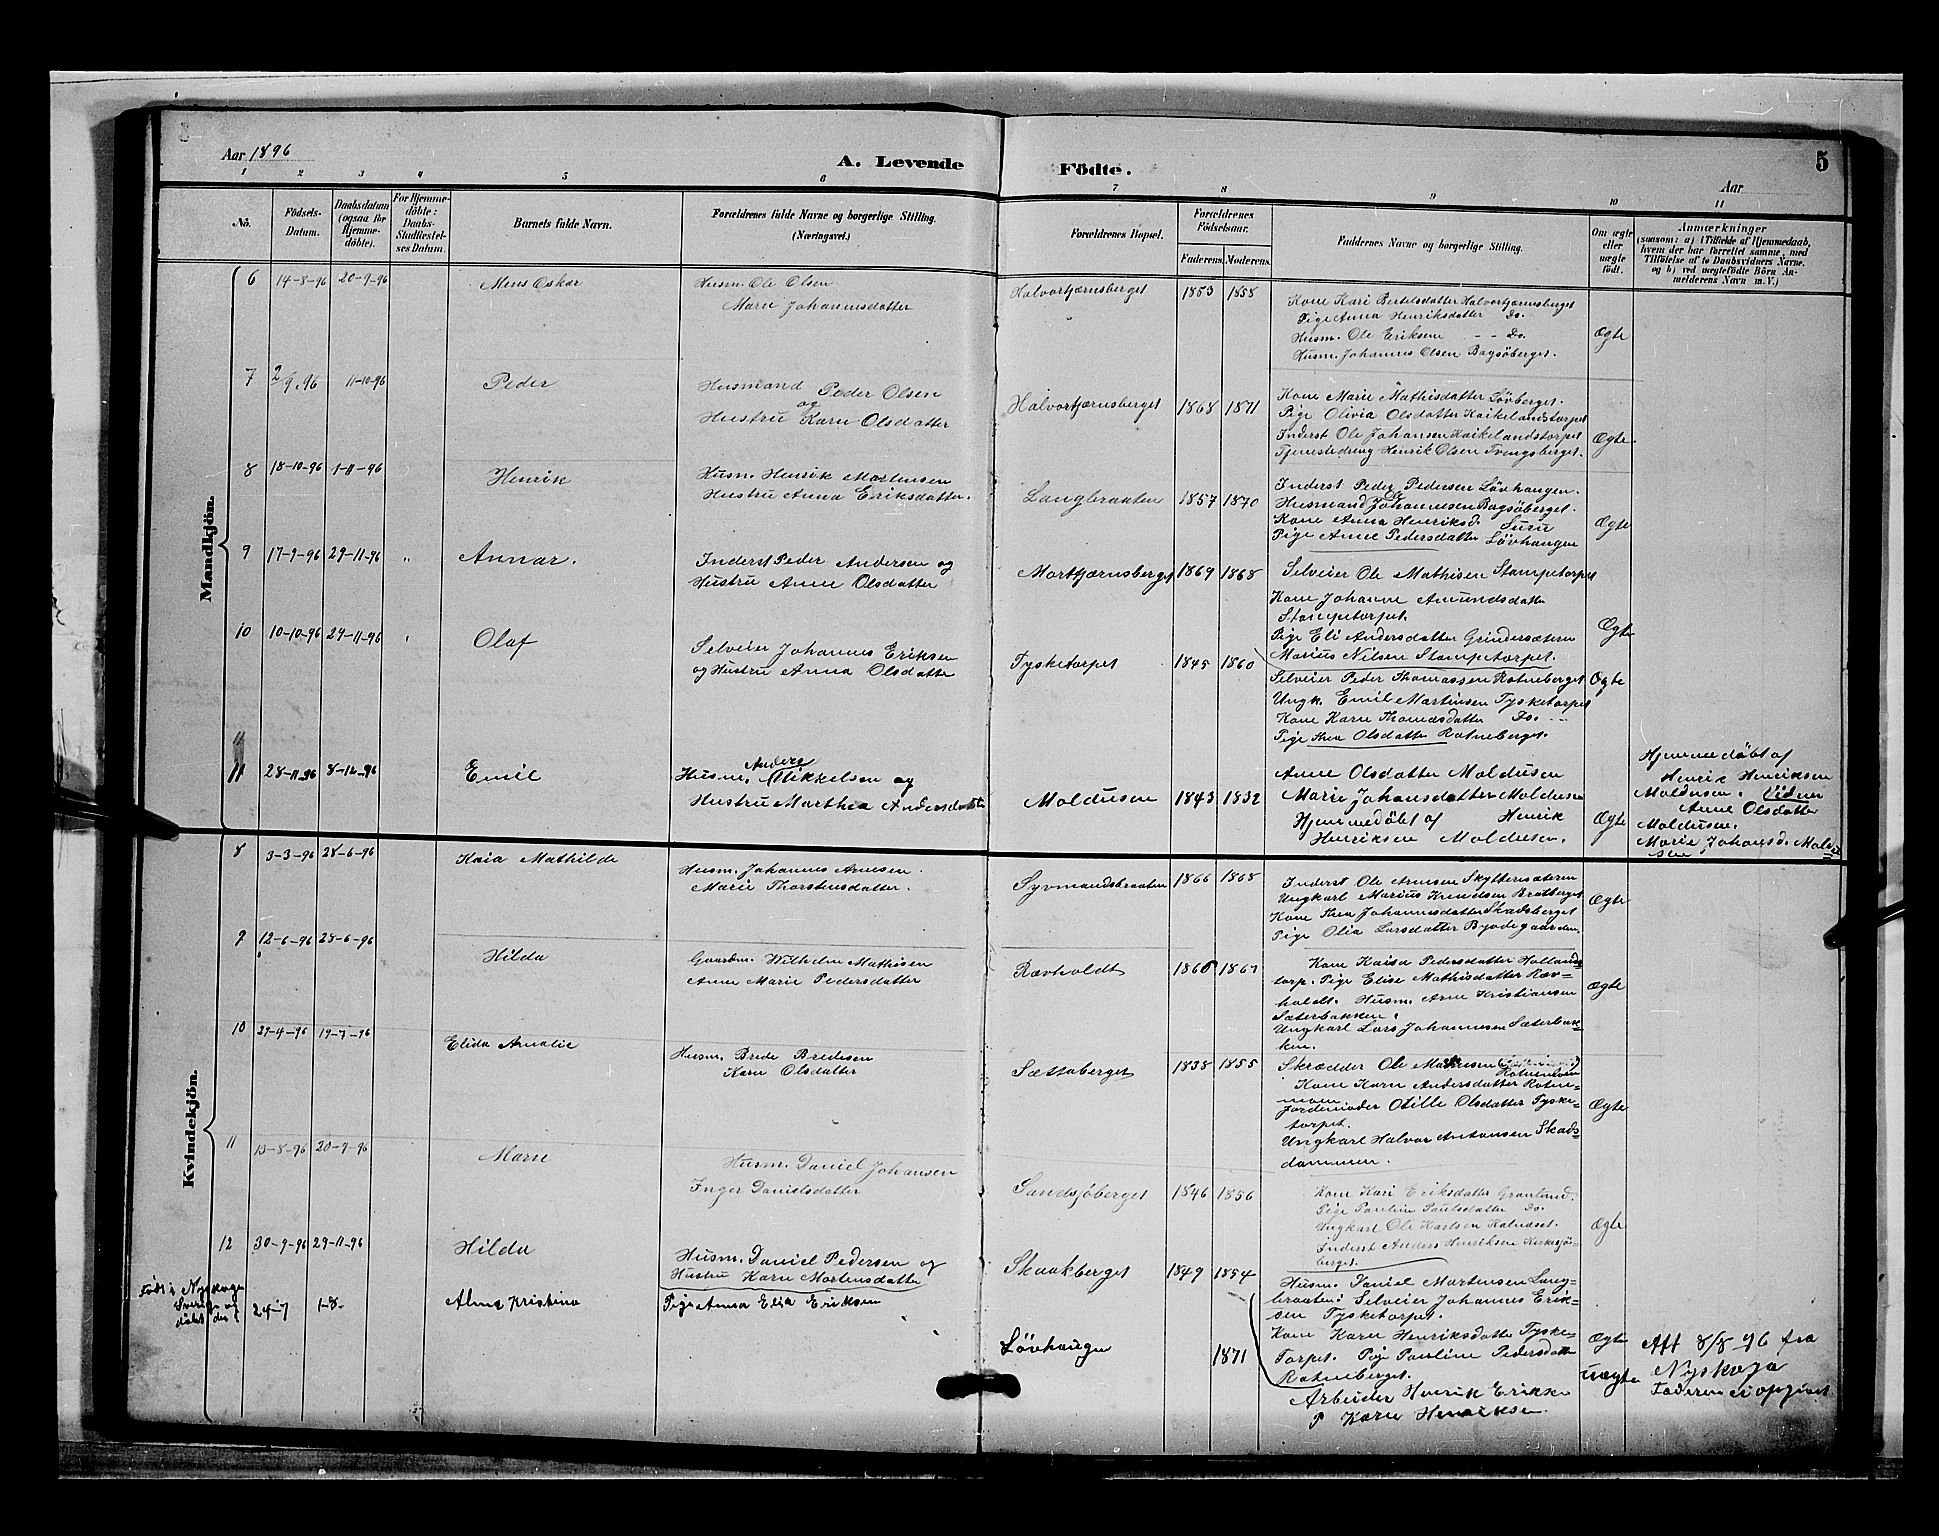 Aar 1896
A. Levende
Födte.
5
Aar
1 2 3 4 5 6 7 8 9 10 11
No.
Födsels-
Datum.
Daabsdatum
(ogsaa for
Hjemme-
döbte).
For Hjemme-
döbte:
Daabs-
Stadfæstel-
ses Datum.
Barnets fulde Navn.
Forældrenes fulde Navne og borgerlige Stilling.
(Næringsvei.)
Forældrenes Bopæl.
Forældrenes
Födselsaar.
Faderens. Moderens.
Faddernes Navne og borgerlige Stilling.
Om ægte
eller
uægte
født.
Anmærkninger
(saasom: a) i Tilfælde af Hjemmedaab,
hvem der har forrettet samme, med
Tilföielse af to Daabsvidners Navne.
og b) ved uægtefödte Börn An-
melderens Navn m. V.)
Mandkjön.
6 14-8-96 20-9-96 Mens Oskar
Husm. Ole Olsen
Marie Johannesdatter
Halvortjærnsberget 1853 1858
Kone Kari Bertelsdatter Halvortjærnsberget
Pige Anna Henriksdatter Do.
Husm. Ole Eriksen - - Do.
Husm. Johannes Olsen Bagsöberget.
Ægte
7 2/9.96 11-10-96 Peder
Husmand
Peder Olsen
og
Hustru Karn Olsdatter
Halvortjærnsberget 1868 1871
Kone Marie Mathisdatter Lövberget.
Pige Olivia Olsdatter Kaikelandstorpet
Inderst Ole Johansen Kaikelandstorpet
Tjenestedreng Henrik Olsen Tvengsberget.
Ægte
8 18-10-96 1-11-96 Henrik
Husm. Henrik Mortensen
Hustru Anna Eriksdatter.
Langbraaten 1857 1870
Inderst Peder Pedersen Lövhaugen.
Husmand Johannesen Bagsöberget.
Kone Anna Henriksd.
Pige Anne Pedersdatter Lövhaugen
Ægte
9 17-9-96 29-11-96 " Annar.
Inderst Peder Andersen og
Hustru Anne Olsdatter
Mortjærnsberget 1869 1868
Selveier Ole Mathisen Stampetorpet
Kone Johanne Amundsdatter
Stampetorpet.
Pige Eli Andersdatter Grindersæteren
Marius Nilsen Stampetorpet.
Ægte
10 10-10-96 29-11-96 Olaf
Selveier Johannes Eriksen
og Hustru Anna Olsdatte
Tysketorpet 1845 1860
Selveier Peder Thomassen Rotneberget
Ungk. Emil Martinsen Tysketorpet
Kone Karn Thomasdatter Do. - -
Pige Thea Olsdatter Rotneberget.
Ægte
11
11 28-11-96 8-12-96 Emil
Andere
Husm. Mikkelsen og
Hustru Marthea Andersdatter
Moldusen 1843 1832
Anne Olsdatter Moldusen
Marie Johansdatter Moldusen
Hjemmedöbt af Henrik
Henriksen Moldusen.
Ægte
Hjemmedöbt af
Henrik Henriksen
Moldusen. Vidner
Anne Olsdatter
Moldusen.
Marie Johansd. Moldu
sen
Kvindekjön.
8 3-3-96 28-6-96 Kaia Mathilde
Husm. Johannes Arnesen.
Marie Thorstensdatter.
Syvmandsbraaten 1866 1868
Inderst Ole Arnesen Skyttersæteren
Ungkarl Marius Knudsen Bratberget
Kone Thea Johannesdatter Skadsberget
Pige Olia Larsdatter Bydegaarden.
Ægte
9 12-6-96 28-6-96 Hilda
Gaardm. Wilhelm Mathisen
Anne Marie Pedersdatter
Rævholdt 1860 1867
Kone Kaisa Pedersdatter Hollands-
torp. Pige Elise Mathisdatter Ræv-
holdt. Husm. Arne Kristiansen
Sæterbakken.
Ungkarl Lars Johannesen Sæterbak-
ken.
Ægte
10 29-4-96 19-7-96 Elida Amalie
Husm. Brede Bredesen
Karn Olsdatter
Sættaberget 1838 1855
Skrædder Ole
Rotnemoen
Kone Karn Andersdatter Rotne-
moen
Jordemoder Otille Olsdatter Tyske-
torpet.
Ungkarl Halvor Antonsen Skads-
dammen.
Ægte
11 13-8-96 20-9-96 Marie
Husm. Daniel Johansen
Inger Danielsdatter
Sandsjöberget 1846 1856
Kone Kari Eriksdatter Granlund.
Pige Pauline Paulsdatter Do.
Ungkarl Ole Karlsen Kalneset.
Inderst Anders Henriksen Kerksjö-
berget.
Ægte
12 30-9-96 29-11-96 Hilda
Husm. Daniel Pedersen og
Hustru Karn Mortensdatte
Skaakberget 1849 1854
Husm. Daniel Martensen Lang-
braaten: Selveier Johannes Erik-
sen Tysketorpet.
Kone Karen Henriksdatte Tyske-
Torpet. Pige Pauline Pedersdatt
Rotneberget.
Ægte
Födt i Nyskoga
Sverige og
döbt der
24-7 1-8- Alma Kristina
Pige Anna Elia Eriksen
Lövhaugen 1871
Arbeider Henrik Erikse
P Karn Henriksen.
uægte
Att 8/8-96 fra
Nyskoga
Faderen ei opgivet